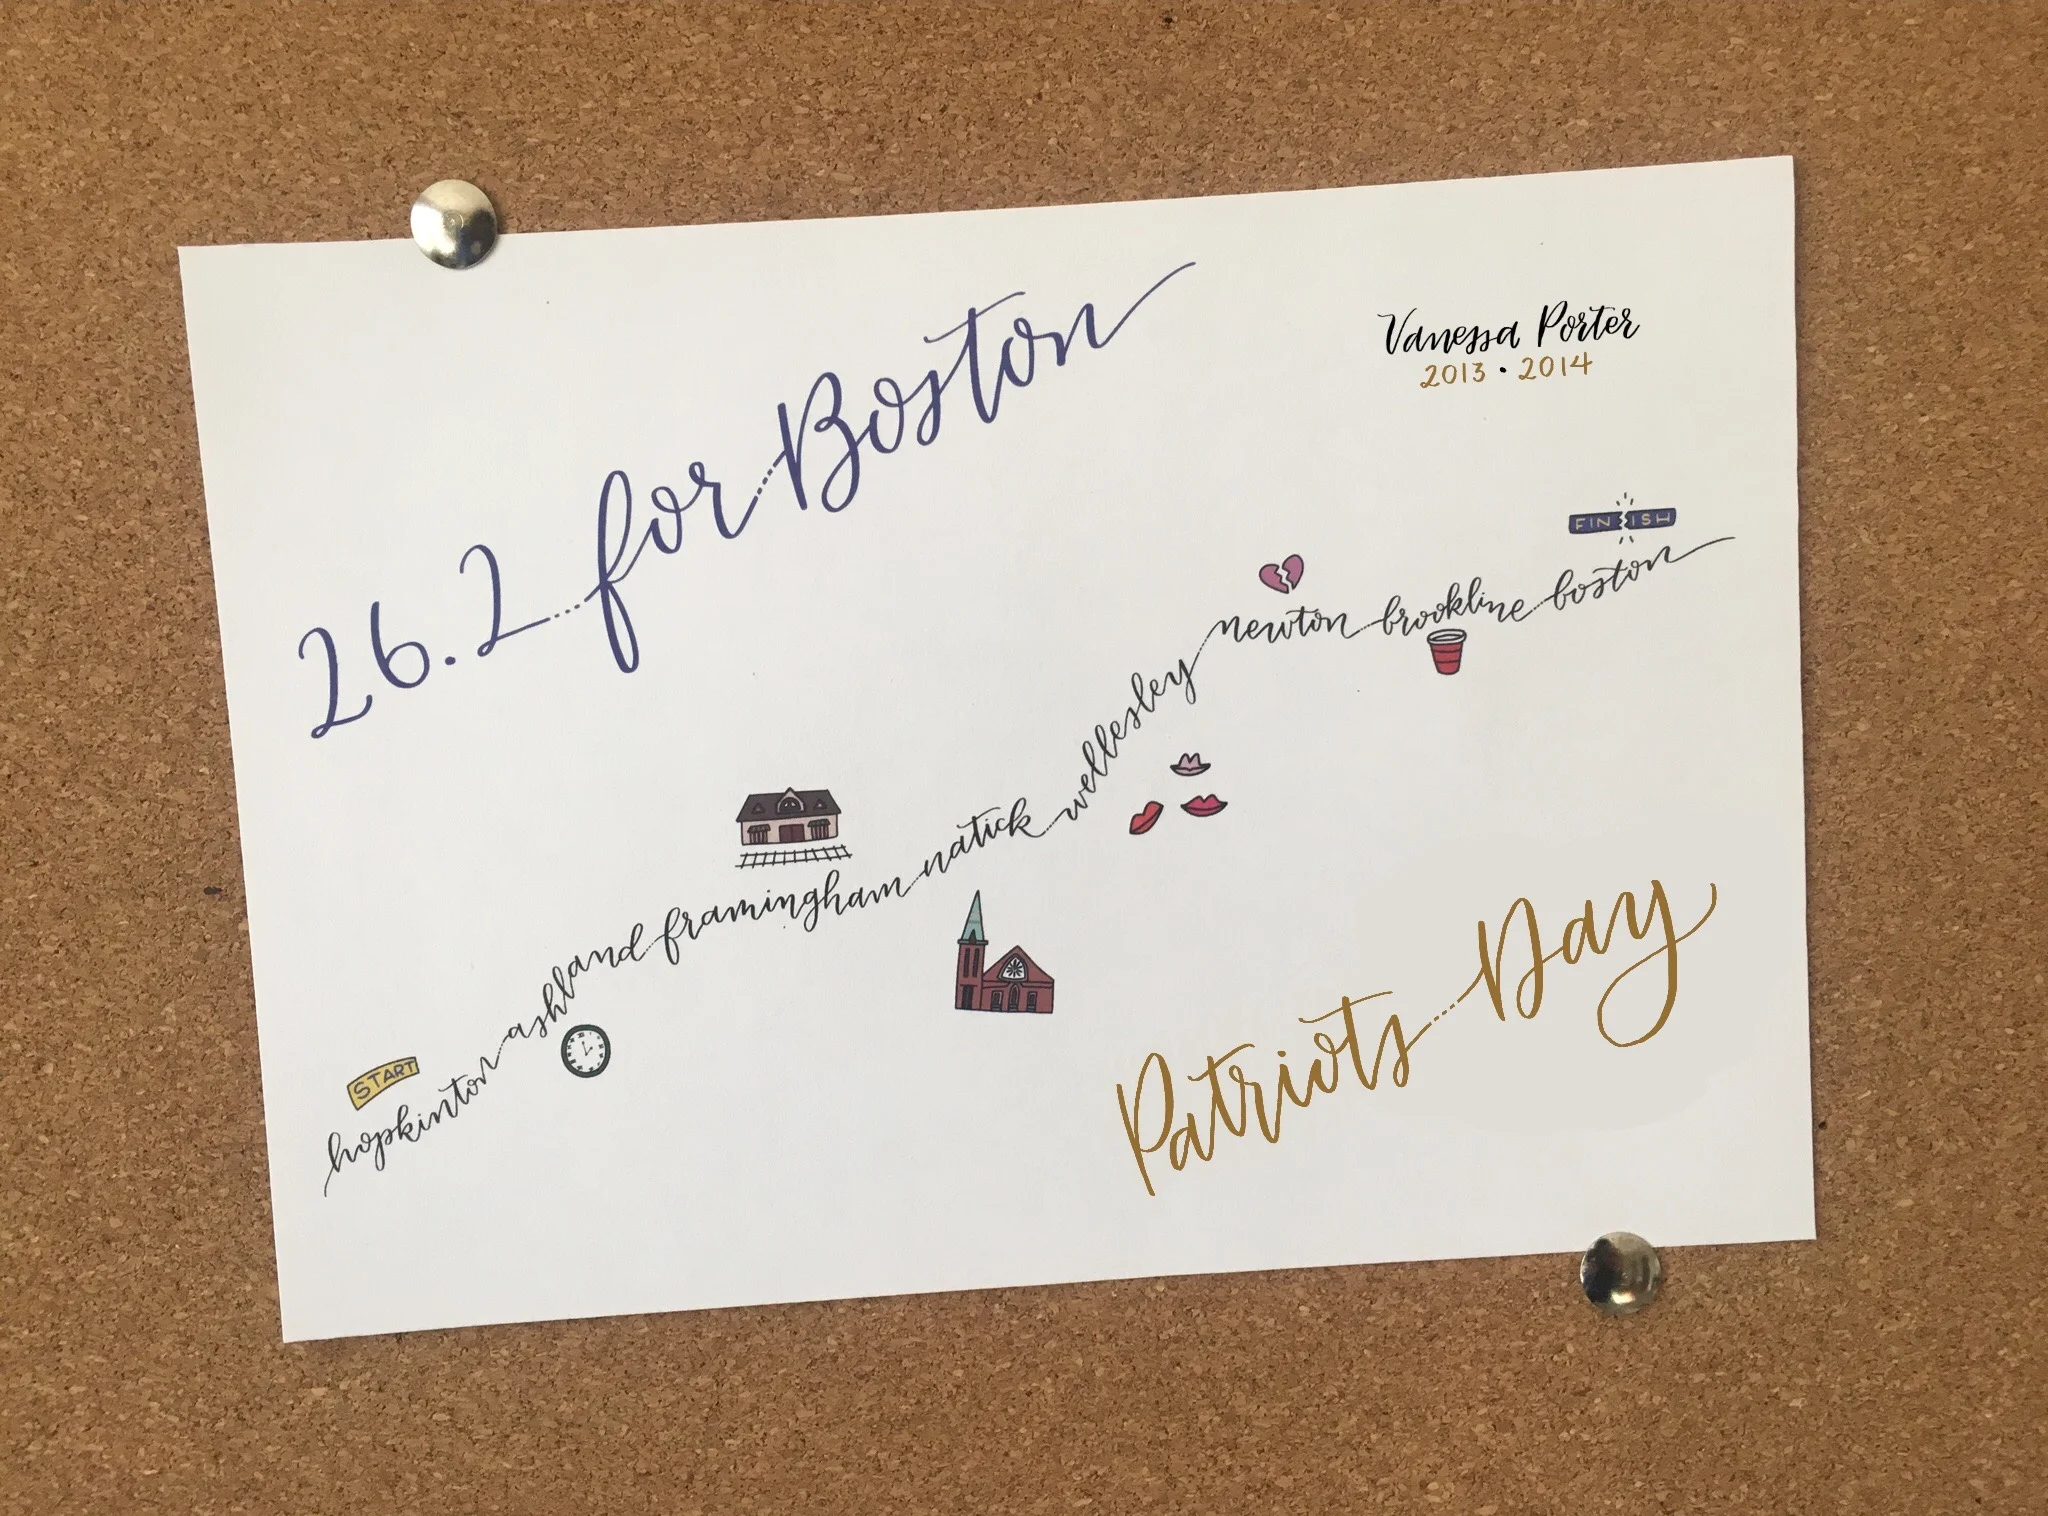 26.2 for Boston
Vanessa Porter
2013 • 2014
FINISH
hopkinton ashland framingham natick wellesley newton brookline boston
START
Patriots Day